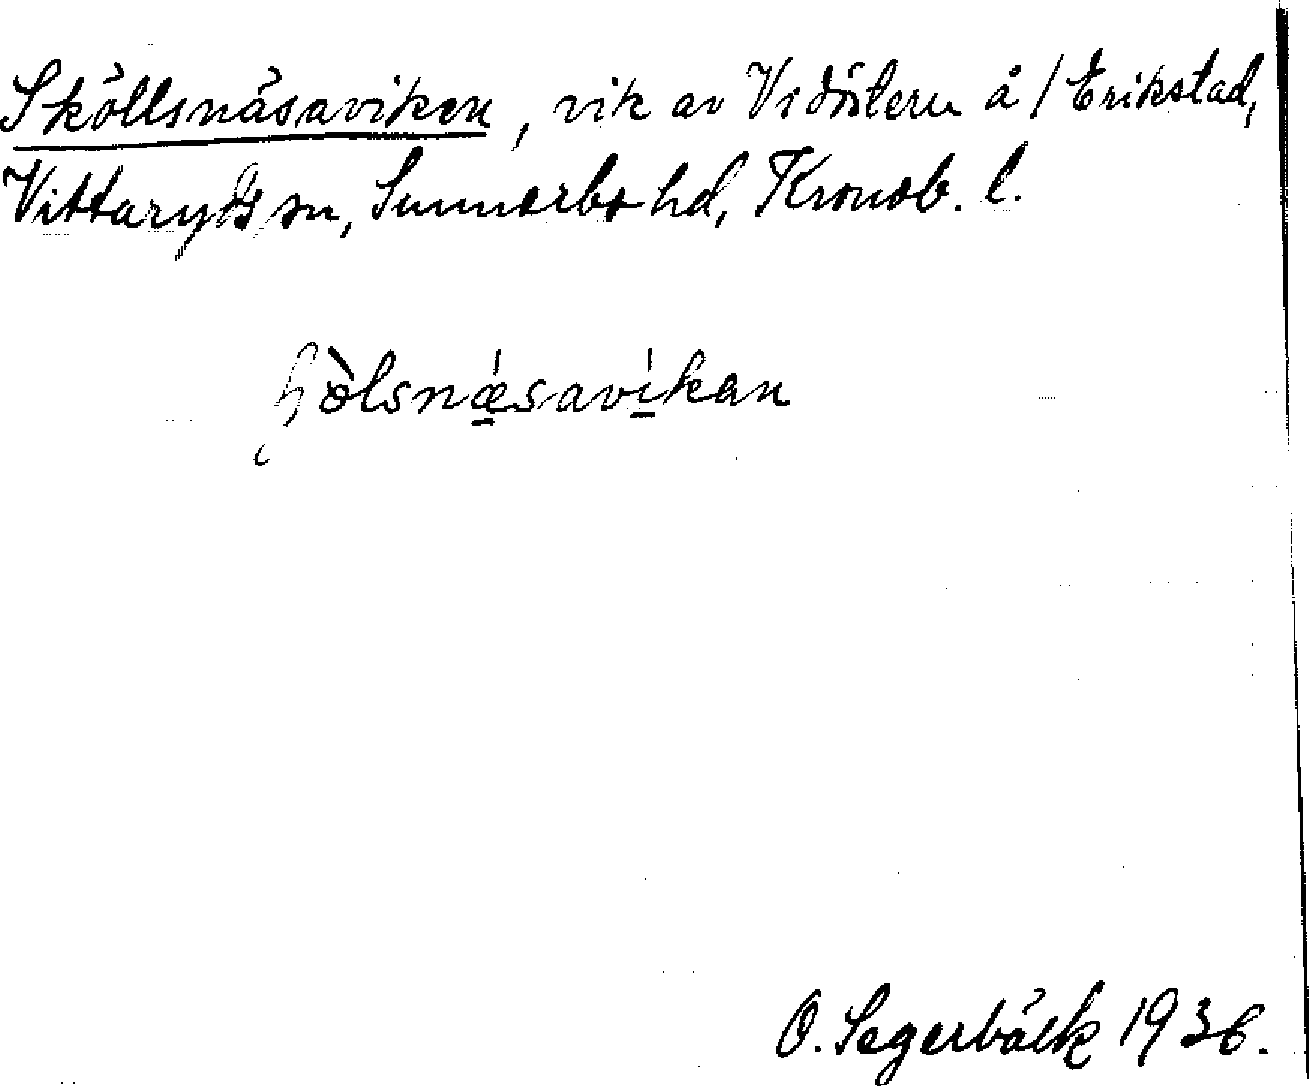 Sköllsnäsaviken, vik av Vidöstern å / Erikstad,
Vittaryds sn, Sunnerbo hd, Kronob. l.
ɧòlsnǽsavíkan
O. Segerbäck 1936.